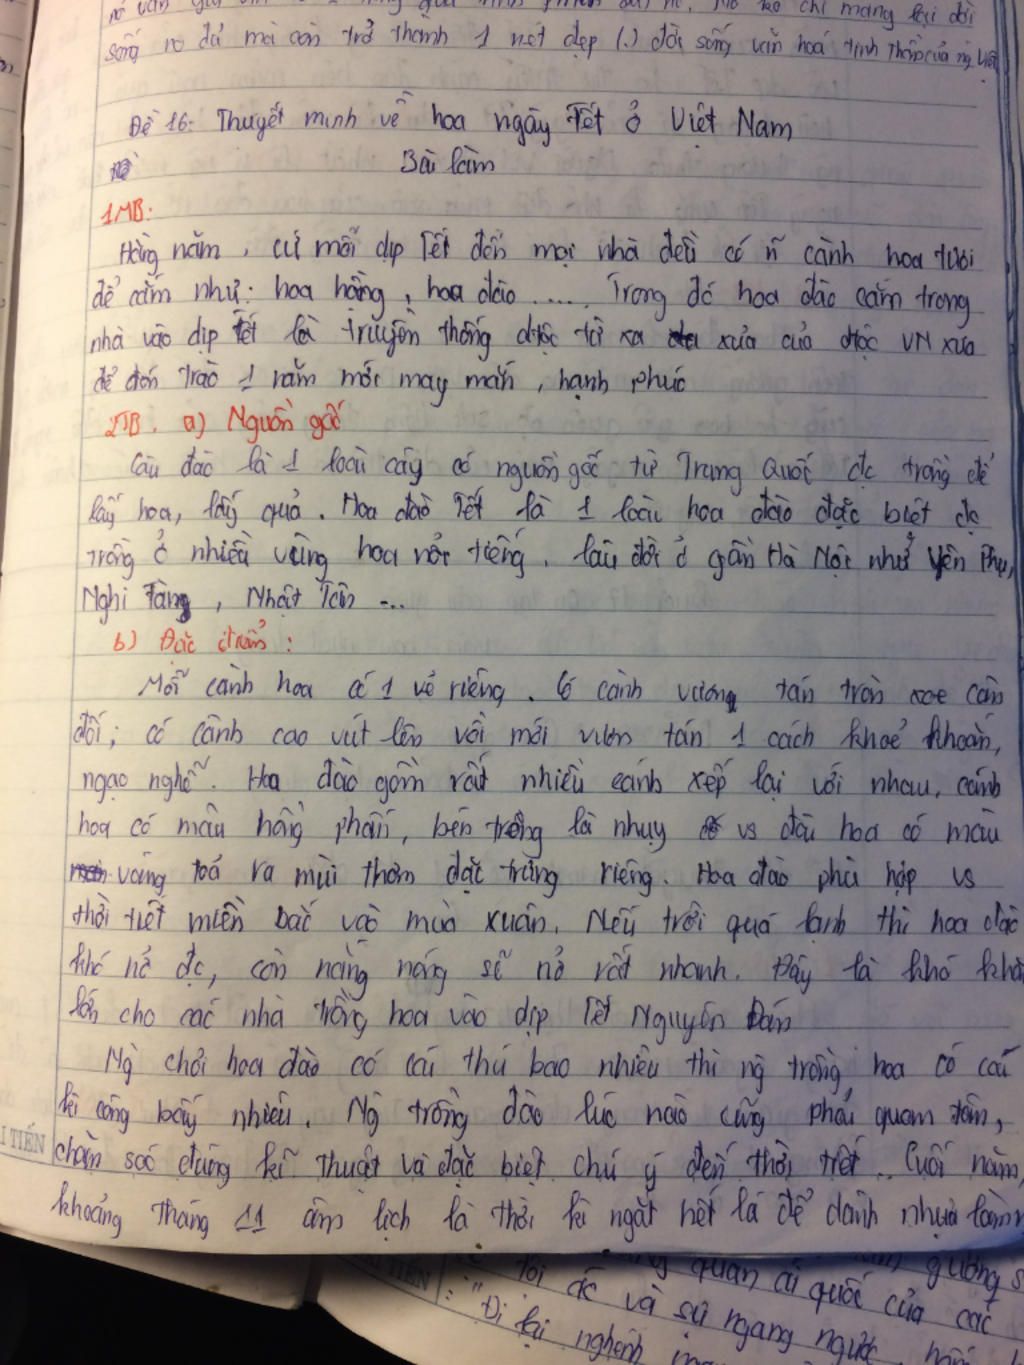 sống no đủ mà còn trở thành 1 nét đẹp (.) đời sống văn hoá tinh thần của ng Việt
Đề 16: Thuyết minh về hoa ngày Tết ở Việt Nam
Bài làm
1MB:
Hằng năm, cứ mỗi dịp Tết đến mọi nhà đều có ~n cành hoa tươi
để cắm như: hoa hồng, hoa đào ..... Trong đó hoa đào cắm trong
nhà vào dịp Tết là truyền thống đtộc từ xa xưa của dtộc VN xưa
để đón trào 1 năm mới may mắn, hạnh phúc
2TB. a) Nguồn gốc
Cây đào là 1 loài cây có nguồn gốc từ Trung Quốc đc trồng để
lấy hoa, lấy quả. Hoa đào Tết là 1 loài hoa đào đặc biệt đc
trồng ở nhiều vùng hoa nổi tiếng, lâu đời ở gần Hà Nội như Yên Phụ,
Nghi Tàng, Nhật Tân ...
b) Đặc điểm:
Mỗi cành hoa có 1 vẻ riêng. Có cành vương tán tròn xoe cân
đối; có cành cao vút lên với mới vươn tán 1 cách khoẻ khoắn,
ngạo nghễ. Hoa đào gồm rất nhiều cánh xếp lại với nhau, cánh
hoa có màu hồng phấn, bên trong là nhụy vs đầu hoa có màu
vàng toả ra mùi thơm đặc trưng riêng. Hoa đào phù hợp vs
thời tiết miền bắc vào mùa xuân. Nếu trời quá lạnh thì hoa đào
khó nở đc, còn nắng nóng sẽ nở rất nhanh. Đây là khó khăn
lớn cho các nhà trồng hoa vào dịp Tết Nguyên Đán
Ng chơi hoa đào có cái thú bao nhiêu thì ng trồng hoa có cái
kì công bấy nhiêu. Ng trồng đào lúc nào cũng phải quan tâm,
chăm sóc đúng kĩ thuật và đặc biệt chú ý đến thời tiết. Cuối năm,
khoảng tháng 11 âm lịch là thời kì ngắt hết lá để dành nhựa làm
TIẾN
quan ái quốc của các
tội ác và sự ngang ngược
: "Đi lại nghênh